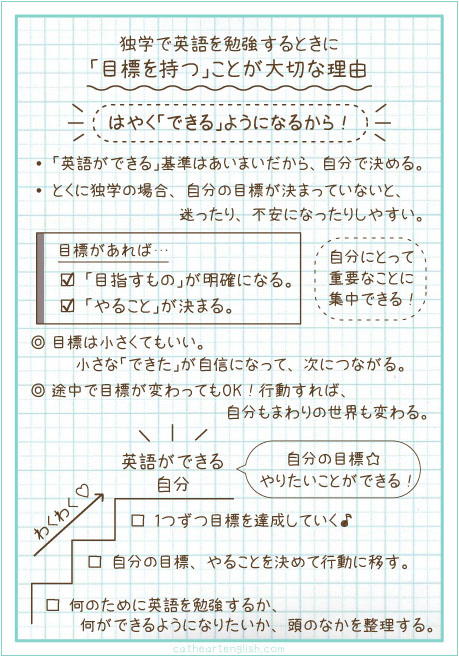 独学で英語を勉強するときに
「目標を持つ」ことが大切な理由
はやく「できる」ようになるから！
• 「英語ができる」基準はあいまいだから、自分で決める。
• とくに独学の場合、自分の目標が決まっていないと、
迷ったり、不安になったりしやすい。
目標があれば…
☑ 「目指すもの」が明確になる。
☑ 「やること」が決まる。
自分にとって
重要なことに
集中できる！
◎ 目標は小さくてもいい。
小さな「できた」が自信になって、次につながる。
◎ 途中で目標が変わってもOK！行動すれば、
自分もまわりの世界も変わる。
英語ができる
自分
自分の目標☆
やりたいことができる！
わくわく♡
□ 1つずつ目標を達成していく♪
□ 自分の目標、やることを決めて行動に移す。
□ 何のために英語を勉強するか、
何ができるようになりたいか、頭のなかを整理する。
catheartenglish.com